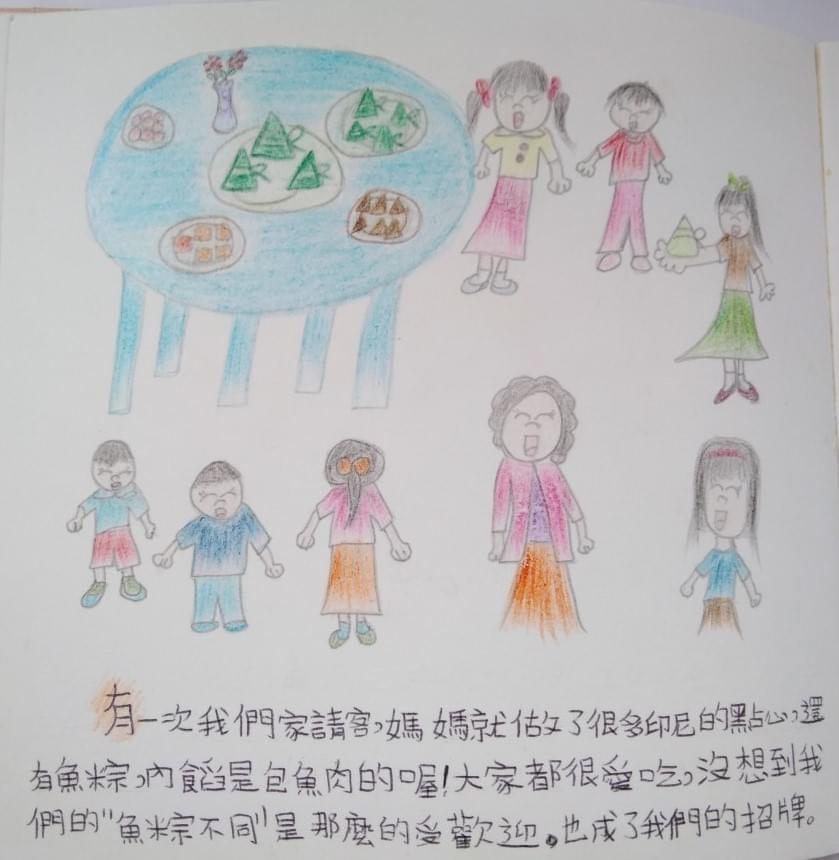 有一次我們家請客,媽媽就做了很多印尼的點心,還
有魚粽,內餡是包魚肉的喔!大家都很愛吃,沒想到我
們的"魚粽不同"是那麼的受歡迎。也成了我們的招牌。